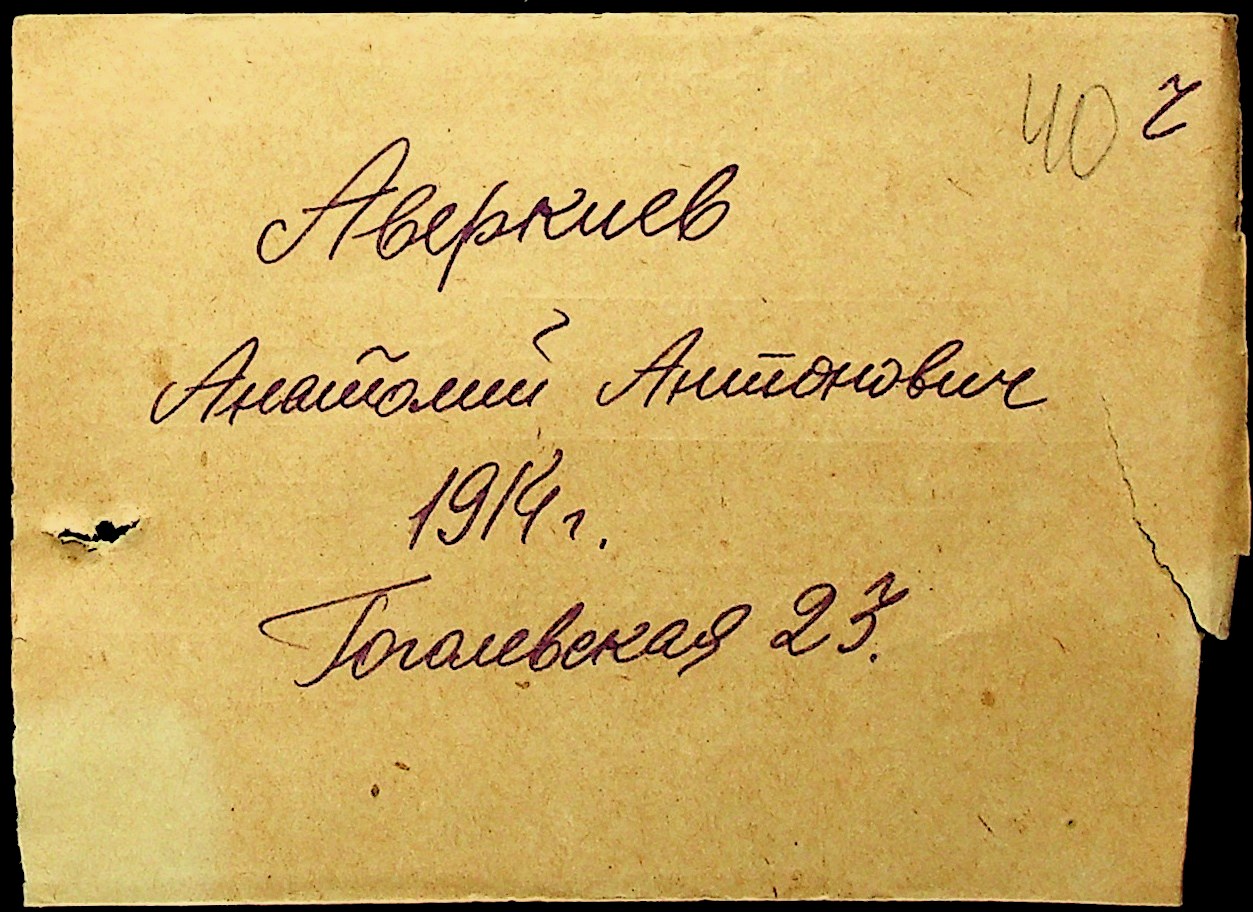 40 г
Аверкиев
Анатолий Антонович
1914 г.
Гоголевская 23.